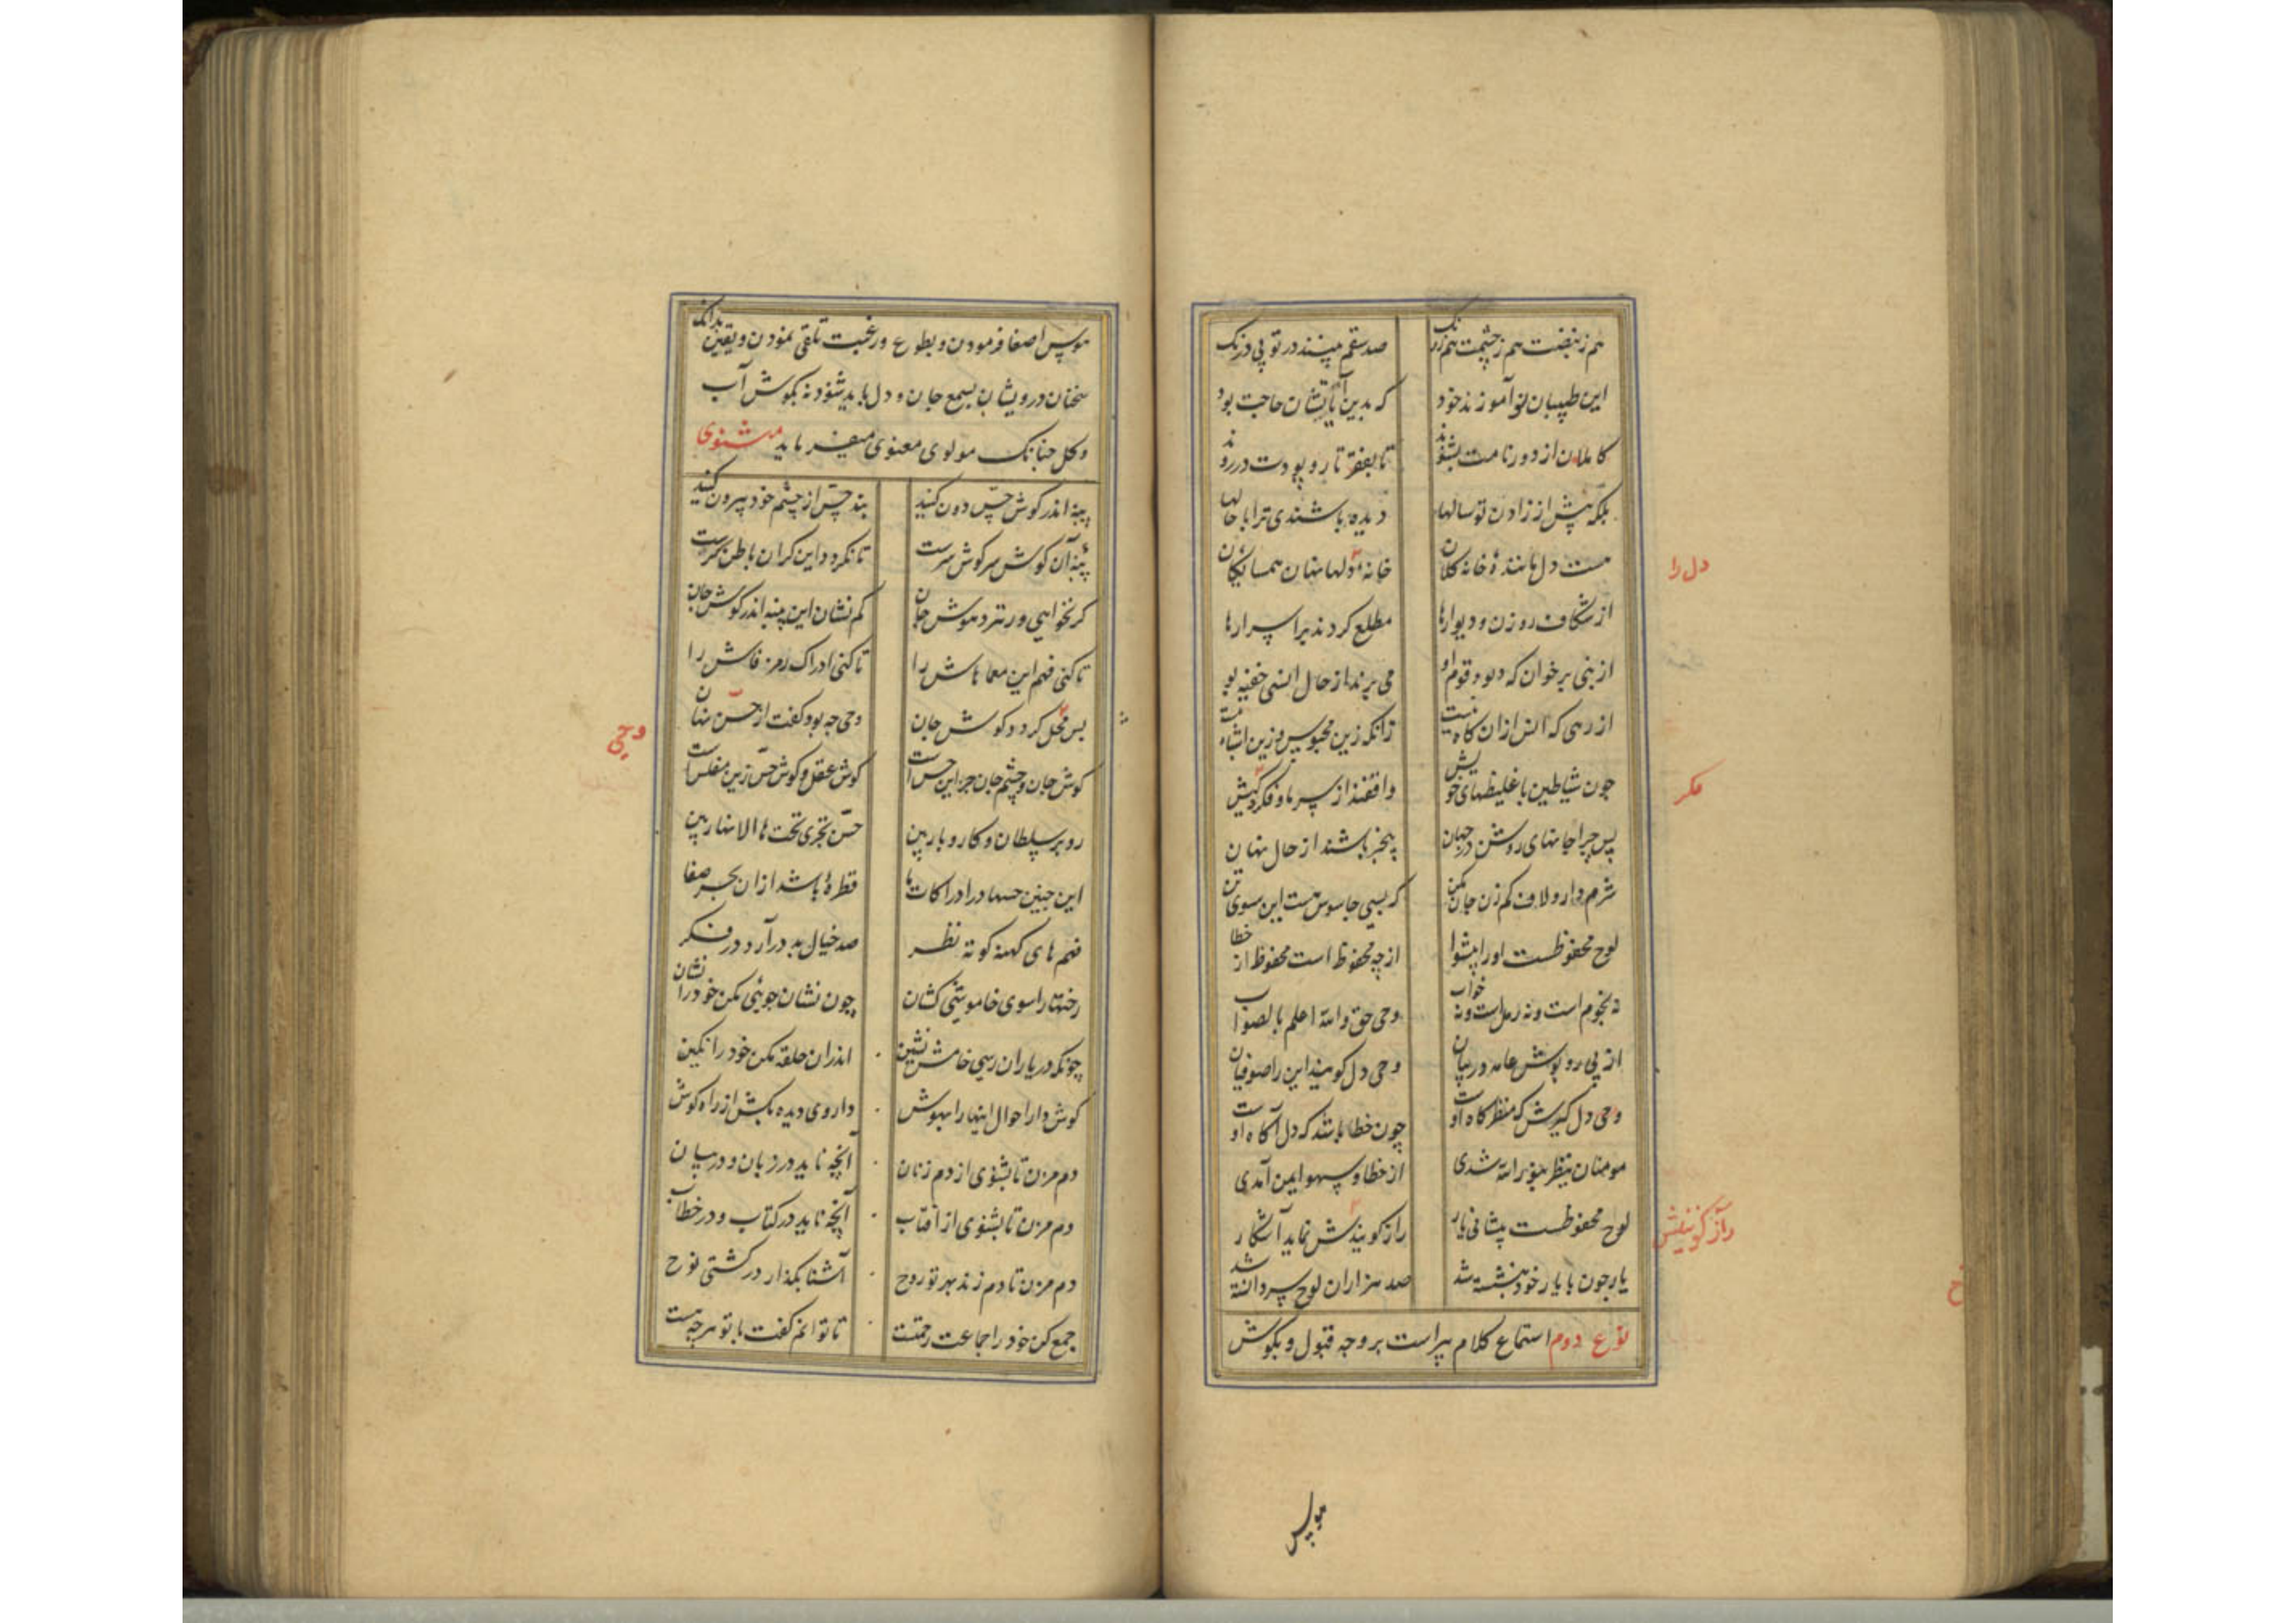 هم ز نبضت هم ز چشمت هم ز رنگ صد سقم بینند در تو بی درنگ
این طبیبان نو آموزند خود که بدین آیاتشان حاجت بود
کاملان از دور نامت بشنوند تا بقعر تار و پودت در روند
بلکه پیش از زادن تو سالها دیده باشندی ترا با حالها
هست دل مانندهٔ خانه کلان خانه دلها نهان همسایگان
از شکاف روزن و دیوارها مطلع گردند بر اسرارها
از نبی بر خوان که دیو و قوم او می برند از حال انسی خفیه بو
از رهی که انس ازان آگاه نیست زانکه زین محبوس وزین اشباه نیست
چون شیاطین با غلیظیهای خویش واقفند از سر ما و فکر و کیش
پس چرا جانهای روشن در جهان بیخبر باشند از حال نهان
شرم دار و لاف کم زن جان مکن که بسی جاسوس هست این سوی تن
لوح محفوظست او را پیشوا از چه محفوظ است محفوظ از خطا
نه نجوم است و نه رمل است و نه خواب وحی حق والله اعلم بالصواب
از پی روپوش عامه در بیان وحی دل گویند این را صوفیان
وحی دل گیرش که منظرگاه اوست چون خطا باشد که دل آگاه اوست
مومنان ینظر بنور الله شدی از خطا و سهو ایمن آمدی
لوح محفوظست پیشانی یار راز کونیندش نماید آشکار
یار چون با یار خود بنشسته شد صد هزاران لوح سر دانسته شد
نوع دوم استماع کلام پیر است بر وجه قبول و بگوش
دل را
فکر
راز کونینش
هوس
هوس اصغا فرمودن و بطوع و رغبت تلقی نمودن و یقین بدانک
سخنان درویشان بسمع جان و دل باید شنود نه بگوش آب
و گل چنانک مولوی معنوی میفرماید مثنوی
پنبه اندر گوش حس دون کنید بند حس از چشم خود بیرون کنید
پنبه آن گوش سر گوش سرست تا نگردد این کران باطن کرست
گر نخواهی در تردد هوش جان کم نشان این پنبه اندر گوش جان
تا کنی فهم این معماهاش را تا کنی ادراک رمز فاش را
پس محل گردد گوش جان وحی چه بود گفت از حس نهان
گوش جان و چشم جان جز این حس است گوش عقل و گوش حس زین مفلس است
رو بر سلطان و کار و بار بین حس تجری تحتها الانهار بین
این چنین حسها در ادراکات ما قطرهٔ باشد ازان بحر صفا
فهم های کهنه کوته نظر صد خیال بد در آرد در فکر
رختها را سوی خاموشی کشان چون نشان جویی مکن خود را نشان
چونکه در یاران رسی خامش نشین اندران حلقه مکن خود را نگین
گوش دار احوال اینها را بهوش داروی دیده بکش از راه گوش
دم مزن تا بشنوی از دم زنان آنچه ناید در زبان و در بیان
دم مزن تا بشنوی از آفتاب آنچه ناید در کتاب و در خطاب
دم مزن تا دم زند بهر تو روح آشنا بگذار در کشتی نوح
جمع کن خود را جماعت رحمتست تا توانم گفت با تو هرچه هست
وحی